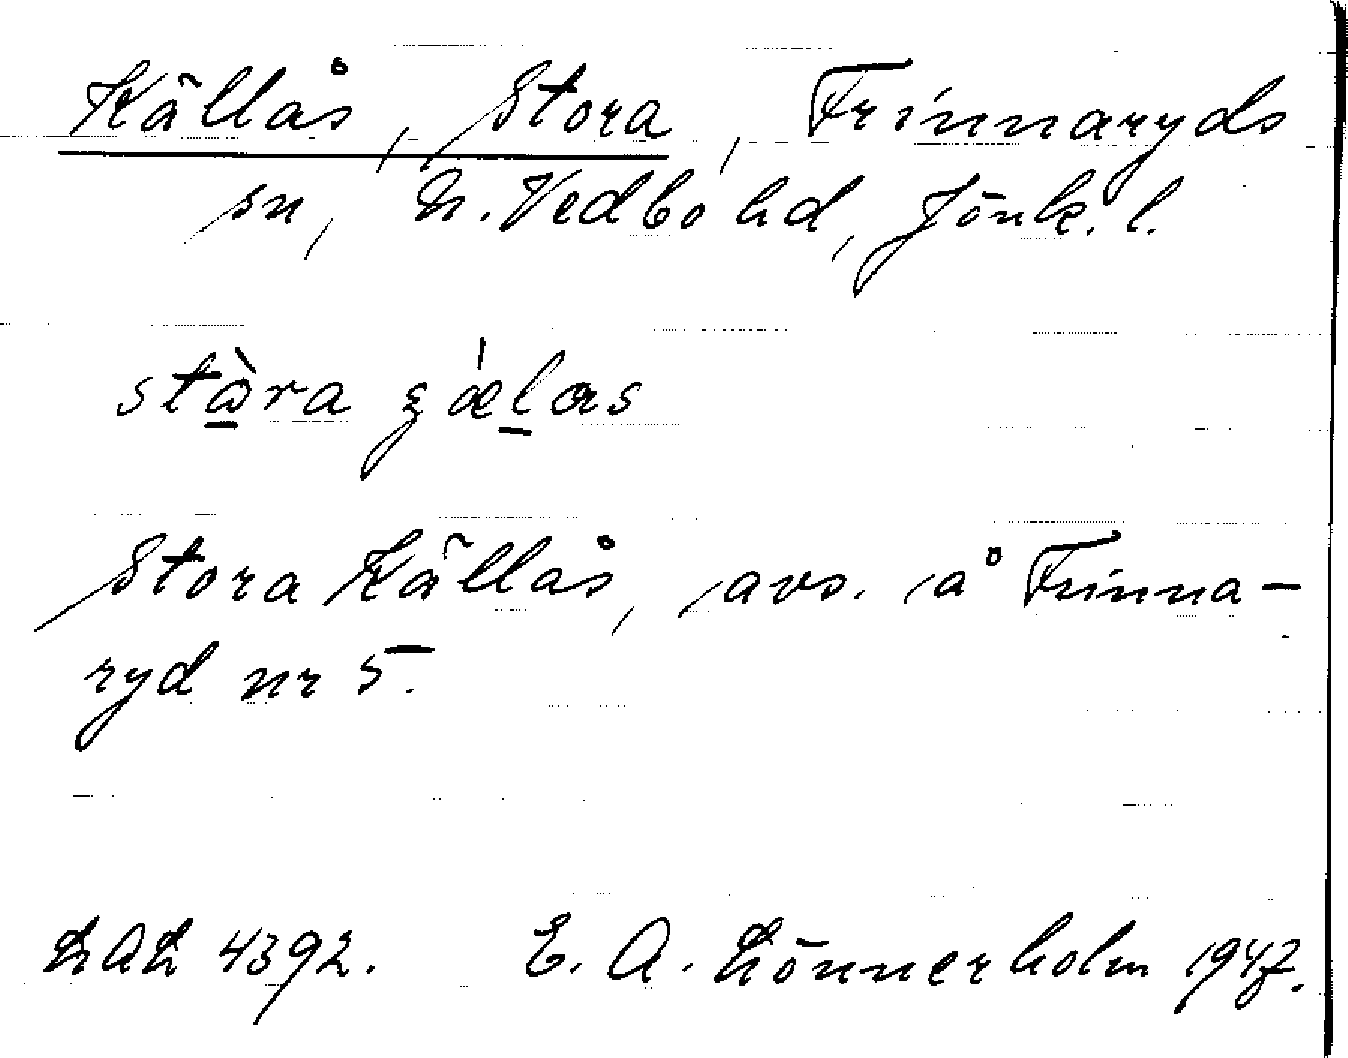 Källås, Stora, Frinnaryds
sn, N. Vedbo hd, Jönk. l.
stòra ʒǽlas
Stora Källås, avs. å Frinna-
ryd nr 5.
LAL 4392. E. A. Lönnerholm 1947.